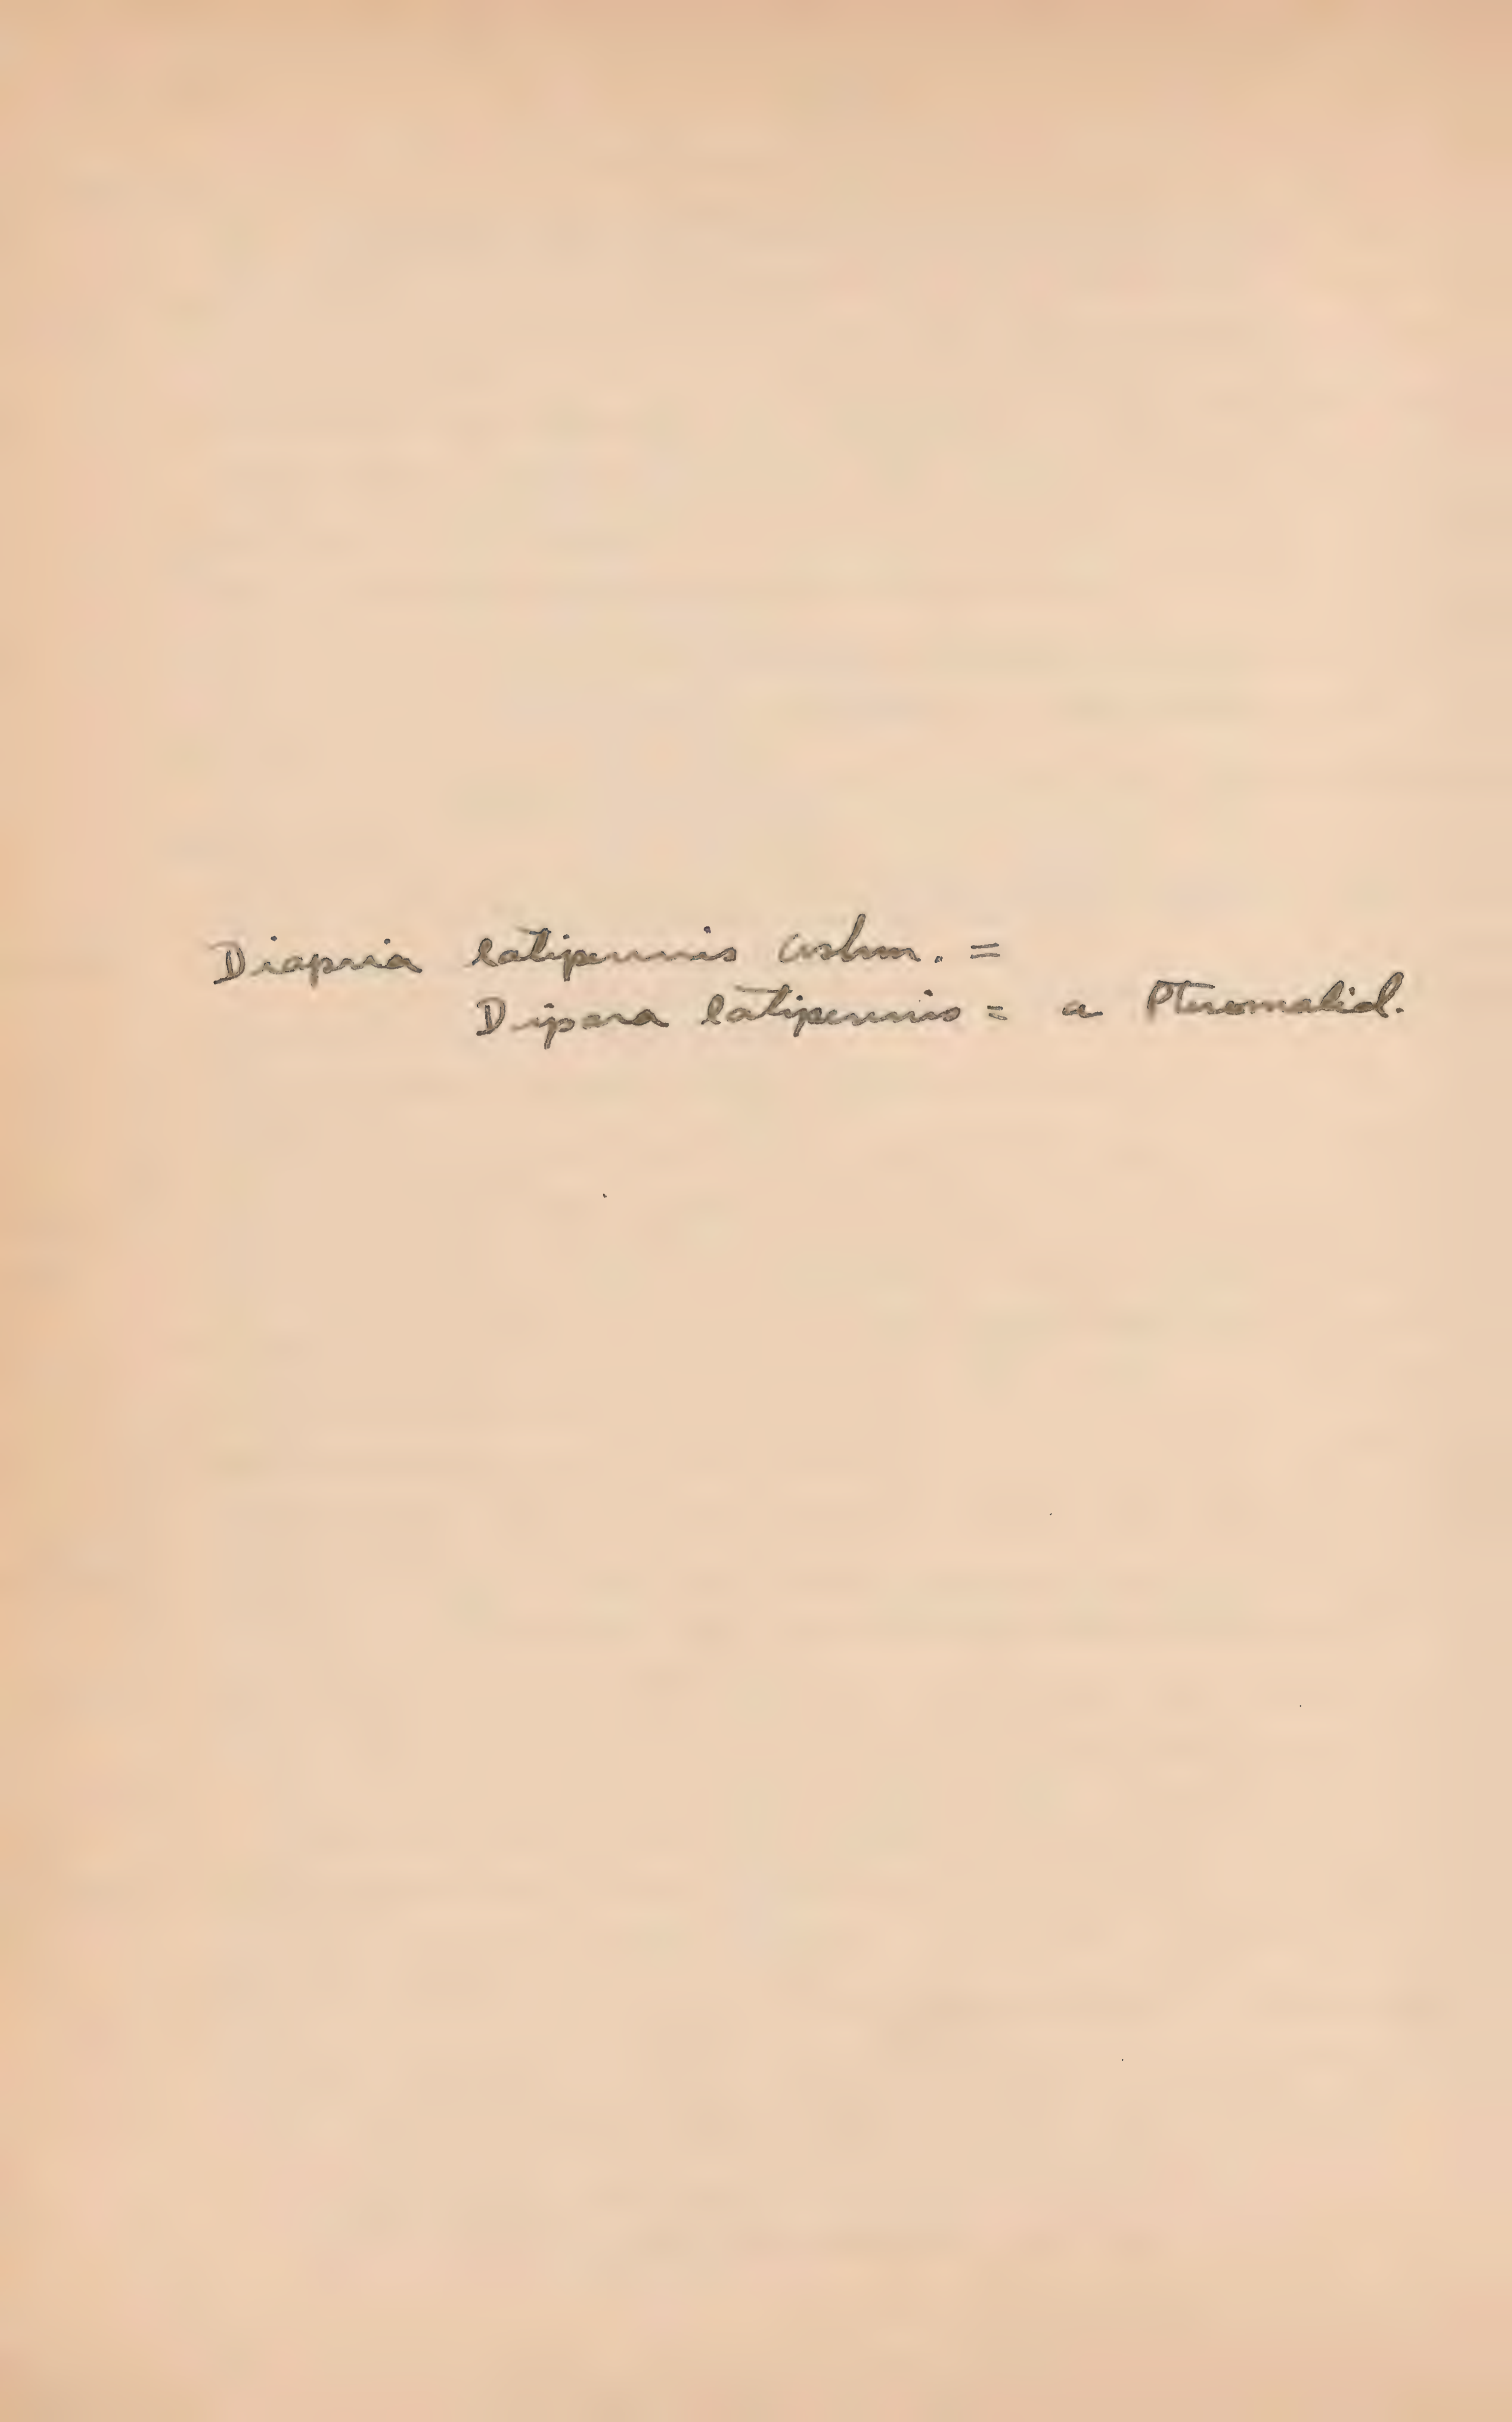 Diapria latipennis Ashm. =
Dipara latipennis = a Pteromalid.